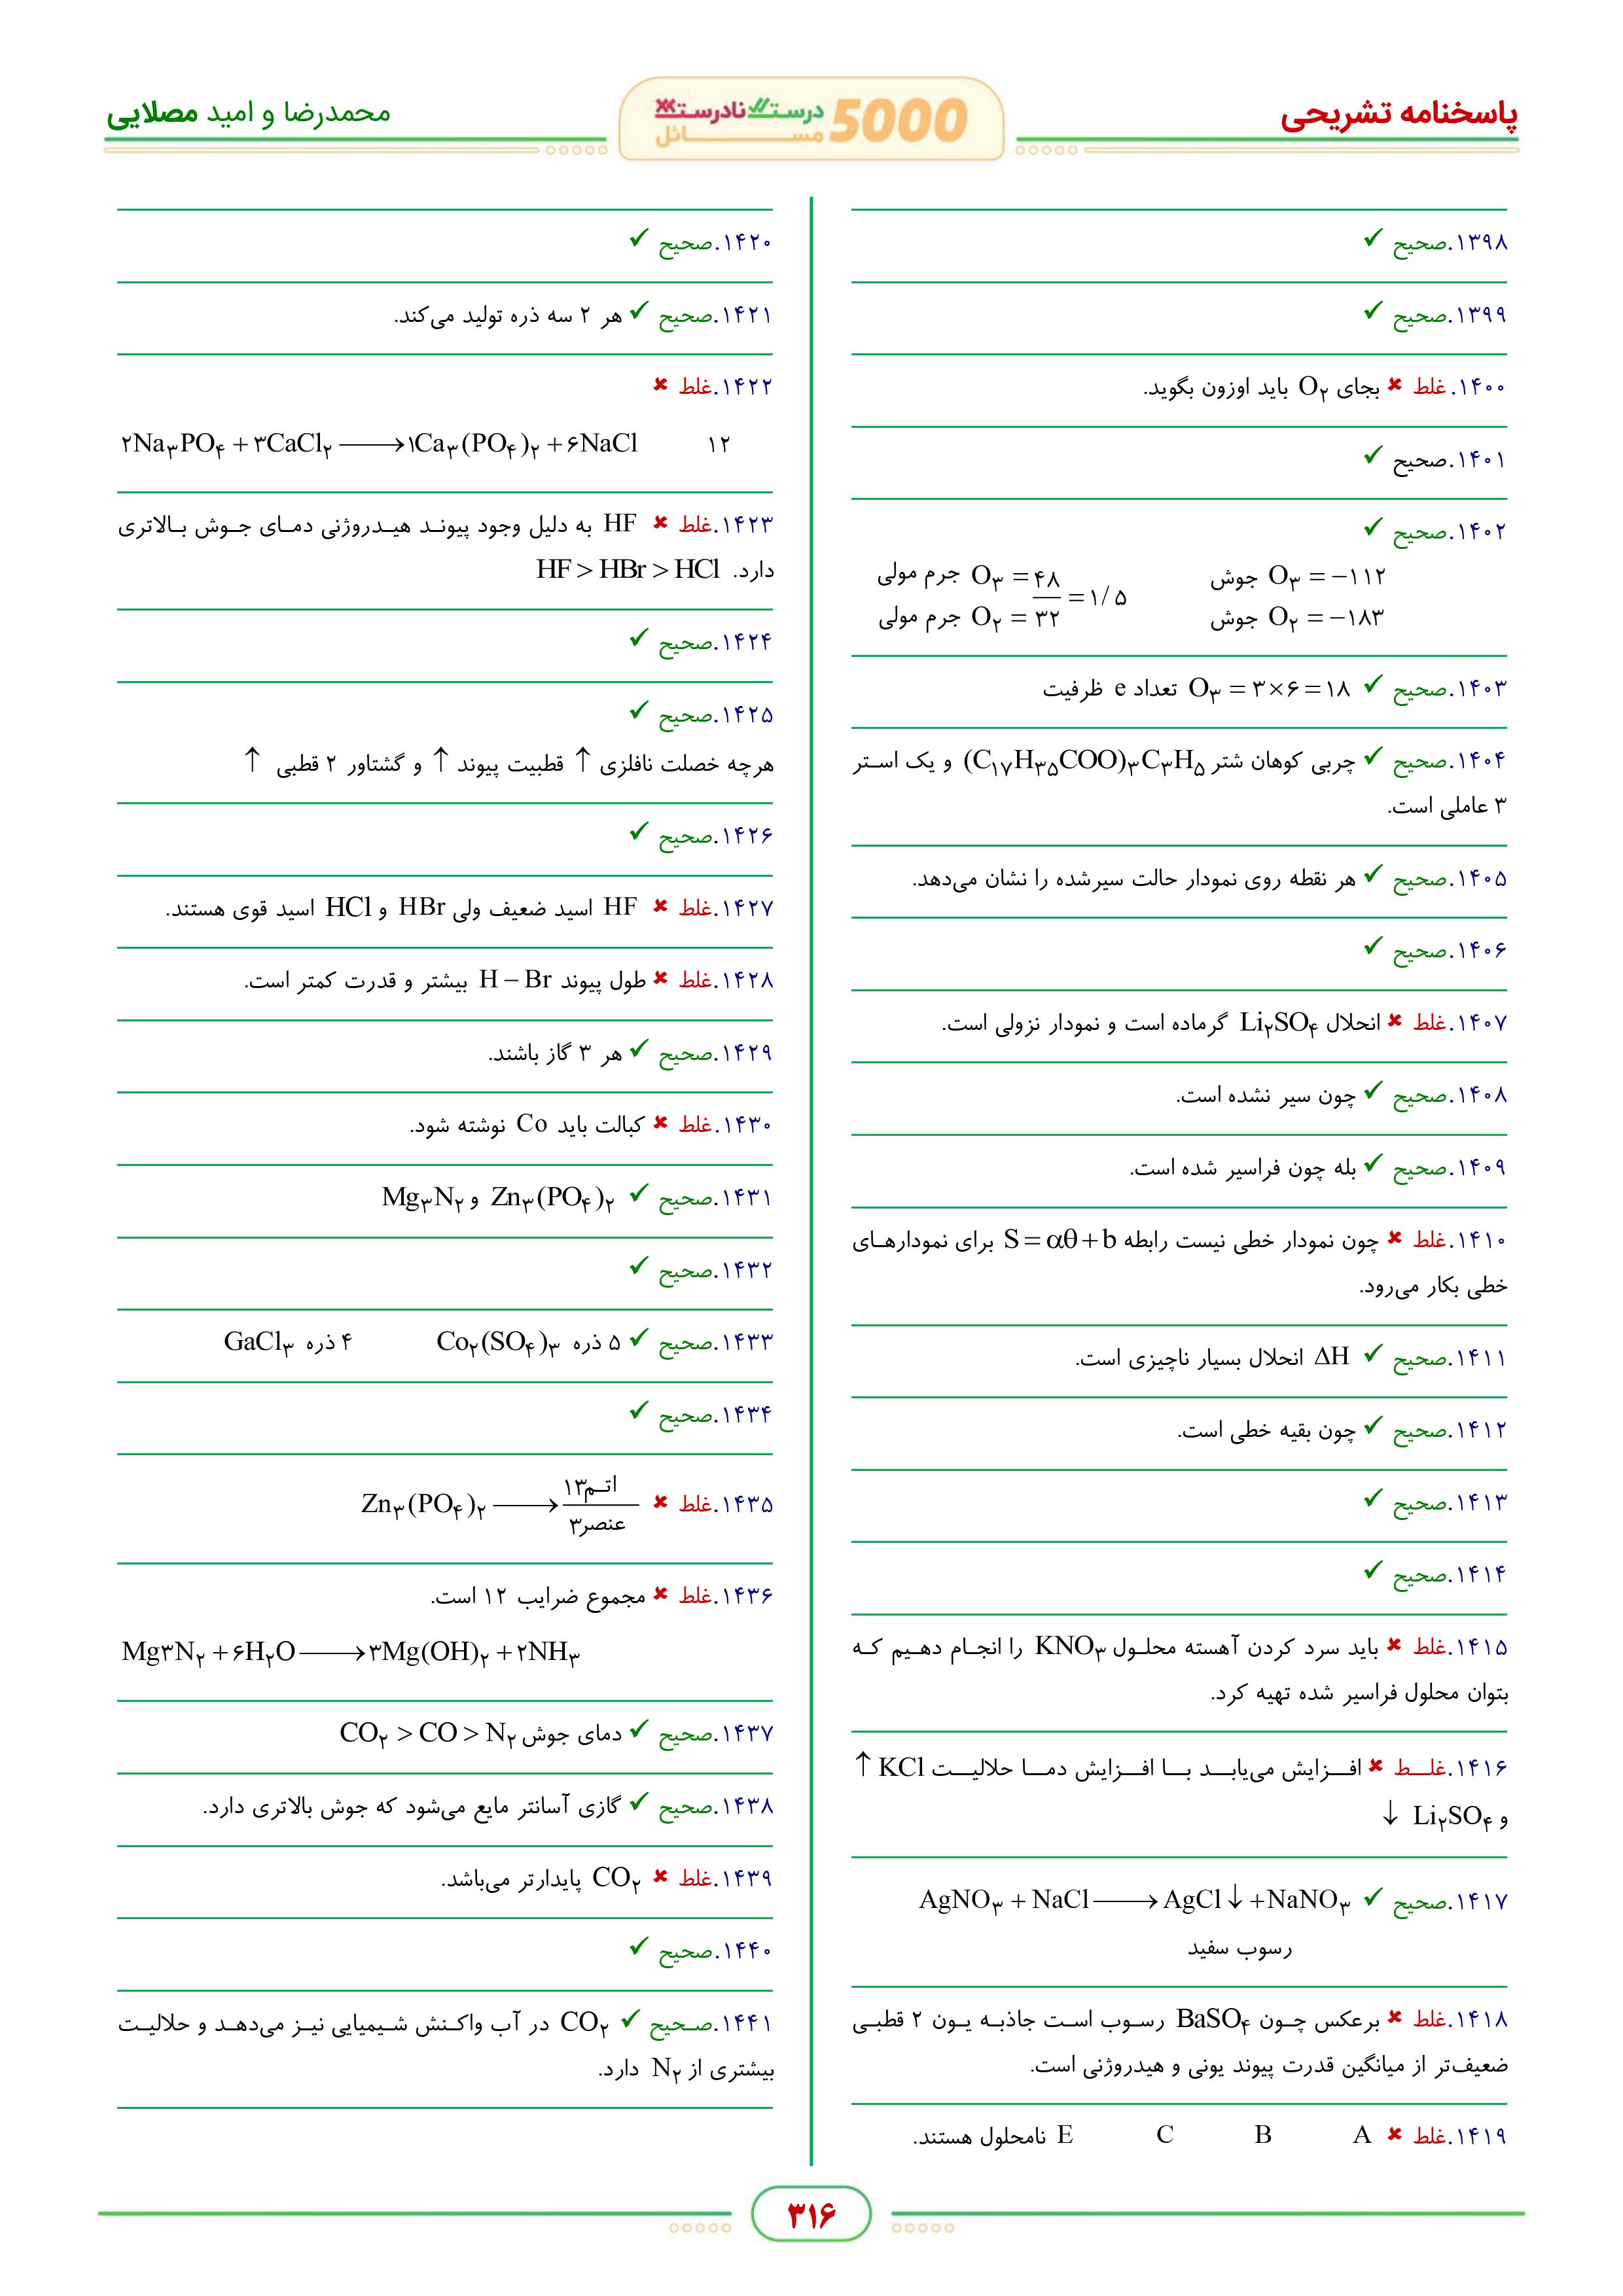 پاسخنامه تشریحی
5000 درست✓✓ نادرست✖✖
مسائل
محمدرضا و امید مصلایی
۱۳۹۸.صحیح ✓
۱۳۹۹.صحیح ✓
۱۴۰۰. غلط ✖ بجای O۲ باید اوزون بگوید.
۱۴۰۱.صحیح ✓
۱۴۰۲.صحیح ✓
جوش O۳ = −۱۱۲   جرم مولی O۳ = ۴۸
جوش O۲ = −۱۸۳   جرم مولی O۲ = ۳۲   = ۱/۵
۱۴۰۳.صحیح ✓ O۳ = ۳×۶ = ۱۸ تعداد e ظرفیت
۱۴۰۴.صحیح ✓ چربی کوهان شتر (C۱۷H۳۵COO)۳C۳H۵ و یک استر
۳ عاملی است.
۱۴۰۵.صحیح ✓ هر نقطه روی نمودار حالت سیرشده را نشان می‌دهد.
۱۴۰۶.صحیح ✓
۱۴۰۷.غلط ✖ انحلال Li۲SO۴ گرماده است و نمودار نزولی است.
۱۴۰۸.صحیح ✓ چون سیر نشده است.
۱۴۰۹.صحیح ✓ بله چون فراسیر شده است.
۱۴۱۰.غلط ✖ چون نمودار خطی نیست رابطه S = αθ + b برای نمودارهای
خطی بکار می‌رود.
۱۴۱۱.صحیح ✓ ΔH انحلال بسیار ناچیزی است.
۱۴۱۲.صحیح ✓ چون بقیه خطی است.
۱۴۱۳.صحیح ✓
۱۴۱۴.صحیح ✓
۱۴۱۵.غلط ✖ باید سرد کردن آهسته محلول KNO۳ را انجام دهیم که
بتوان محلول فراسیر شده تهیه کرد.
۱۴۱۶.غلط ✖ افزایش می‌یابد با افزایش دما حلالیت KCl ↑
و Li۲SO۴ ↓
۱۴۱۷.صحیح ✓ AgNO۳ + NaCl ⟶ AgCl↓ + NaNO۳
رسوب سفید
۱۴۱۸.غلط ✖ برعکس چون BaSO۴ رسوب است جاذبه یون ۲ قطبی
ضعیف‌تر از میانگین قدرت پیوند یونی و هیدروژنی است.
۱۴۱۹.غلط ✖ A B C E نامحلول هستند.
۱۴۲۰.صحیح ✓
۱۴۲۱.صحیح ✓ هر ۲ سه ذره تولید می‌کند.
۱۴۲۲.غلط ✖
۲Na۳PO۴ + ۳CaCl۲ ⟶ ۱Ca۳(PO۴)۲ + ۶NaCl   ۱۲
۱۴۲۳.غلط ✖ HF به دلیل وجود پیوند هیدروژنی دمای جوش بالاتری
دارد. HF > HBr > HCl
۱۴۲۴.صحیح ✓
۱۴۲۵.صحیح ✓
هرچه خصلت نافلزی ↑ قطبیت پیوند ↑ و گشتاور ۲ قطبی ↑
۱۴۲۶.صحیح ✓
۱۴۲۷.غلط ✖ HF اسید ضعیف ولی HBr و HCl اسید قوی هستند.
۱۴۲۸.غلط ✖ طول پیوند H − Br بیشتر و قدرت کمتر است.
۱۴۲۹.صحیح ✓ هر ۳ گاز باشند.
۱۴۳۰.غلط ✖ کبالت باید Co نوشته شود.
۱۴۳۱.صحیح ✓ Zn۳(PO۴)۲ و Mg۳N۲
۱۴۳۲.صحیح ✓
۱۴۳۳.صحیح ✓ ۵ ذره Co۲(SO۴)۳   ۴ ذره GaCl۳
۱۴۳۴.صحیح ✓
۱۴۳۵.غلط ✖ Zn۳(PO۴)۲ ⟶ ۱۳اتم
۳عنصر
۱۴۳۶.غلط ✖ مجموع ضرایب ۱۲ است.
Mg۳N۲ + ۶H۲O ⟶ ۳Mg(OH)۲ + ۲NH۳
۱۴۳۷.صحیح ✓ دمای جوش CO۲ > CO > N۲
۱۴۳۸.صحیح ✓ گازی آسانتر مایع می‌شود که جوش بالاتری دارد.
۱۴۳۹.غلط ✖ CO۲ پایدارتر می‌باشد.
۱۴۴۰.صحیح ✓
۱۴۴۱.صحیح ✓ CO۲ در آب واکنش شیمیایی نیز می‌دهد و حلالیت
بیشتری از N۲ دارد.
۳۱۶